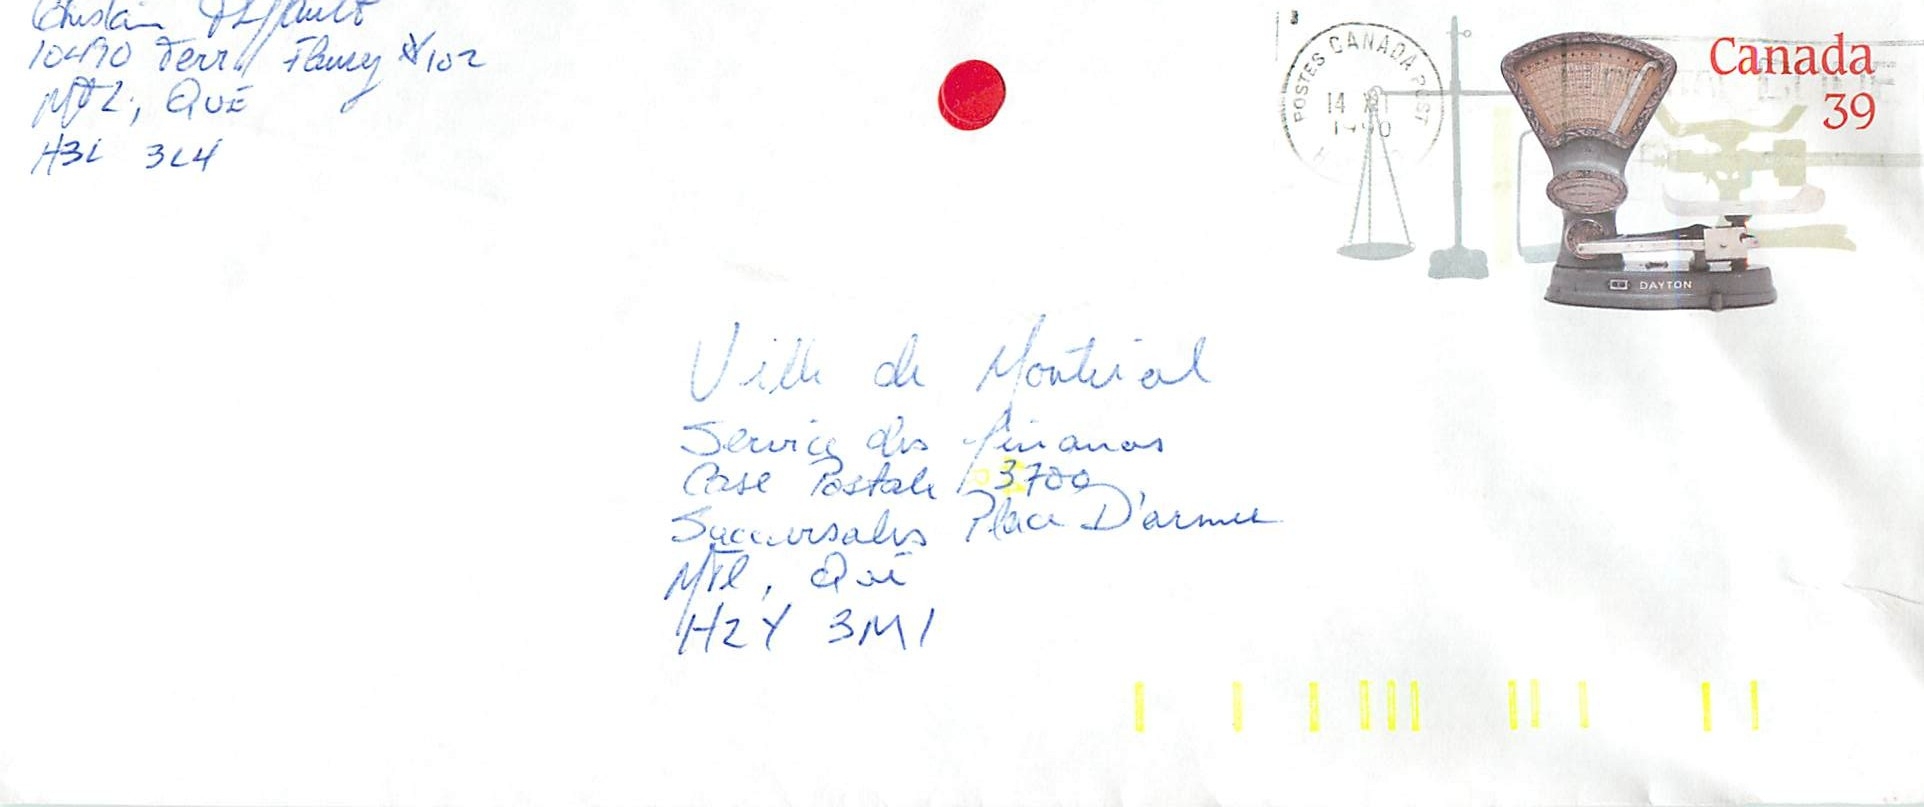 Ghislain
10490 Terr Fleury #102
MTL, QUÉ
H3L 3L4
POSTES CANADA POST
14 XI
1990
Canada
39
DAYTON
Ville de Montréal
Service des finances
Case Postale 3700
Succursales Place D'armes
MTl, Qué
H2Y 3M1